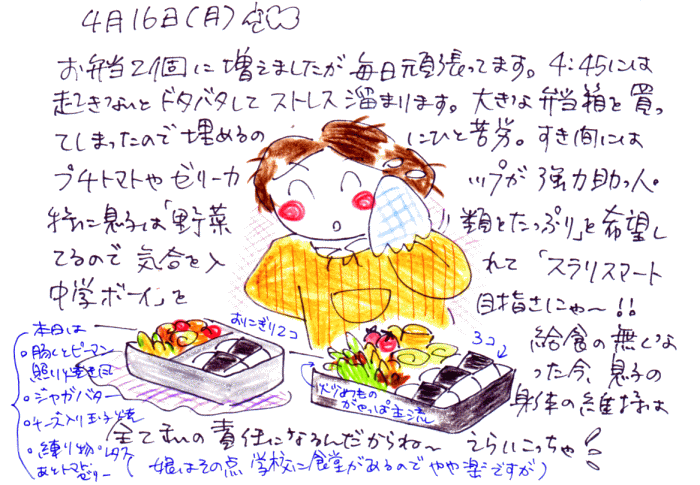 4月16日(月)
お弁当2個に増えましたが毎日頑張ってます。4:45には
起きないとドタバタしてストレス溜まります。大きな弁当箱を買っ
てしまったので埋めるのにひと苦労。すき間には
プチトマトやゼリーカップが強力助っ人。
特に息子は「野菜類をたっぷり」と希望し
てるので気合を入れて「スラリスマート
中学ボーイ」を目指さにゃ〜!!
給食の無くな
った今、息子の
身体の維持は
全て私の責任になるんだからね〜 えらいこっちゃ!
(娘はその点学校に食堂があるのでやや楽ですが)
おにぎり2コ
3コ
炊めものがやっぱ主流
本日は
・豚とピーマン
照り焼き風
・ジャガバター
・チーズ入り玉子焼
・練り物・レタス
あとトマト・ゼリー